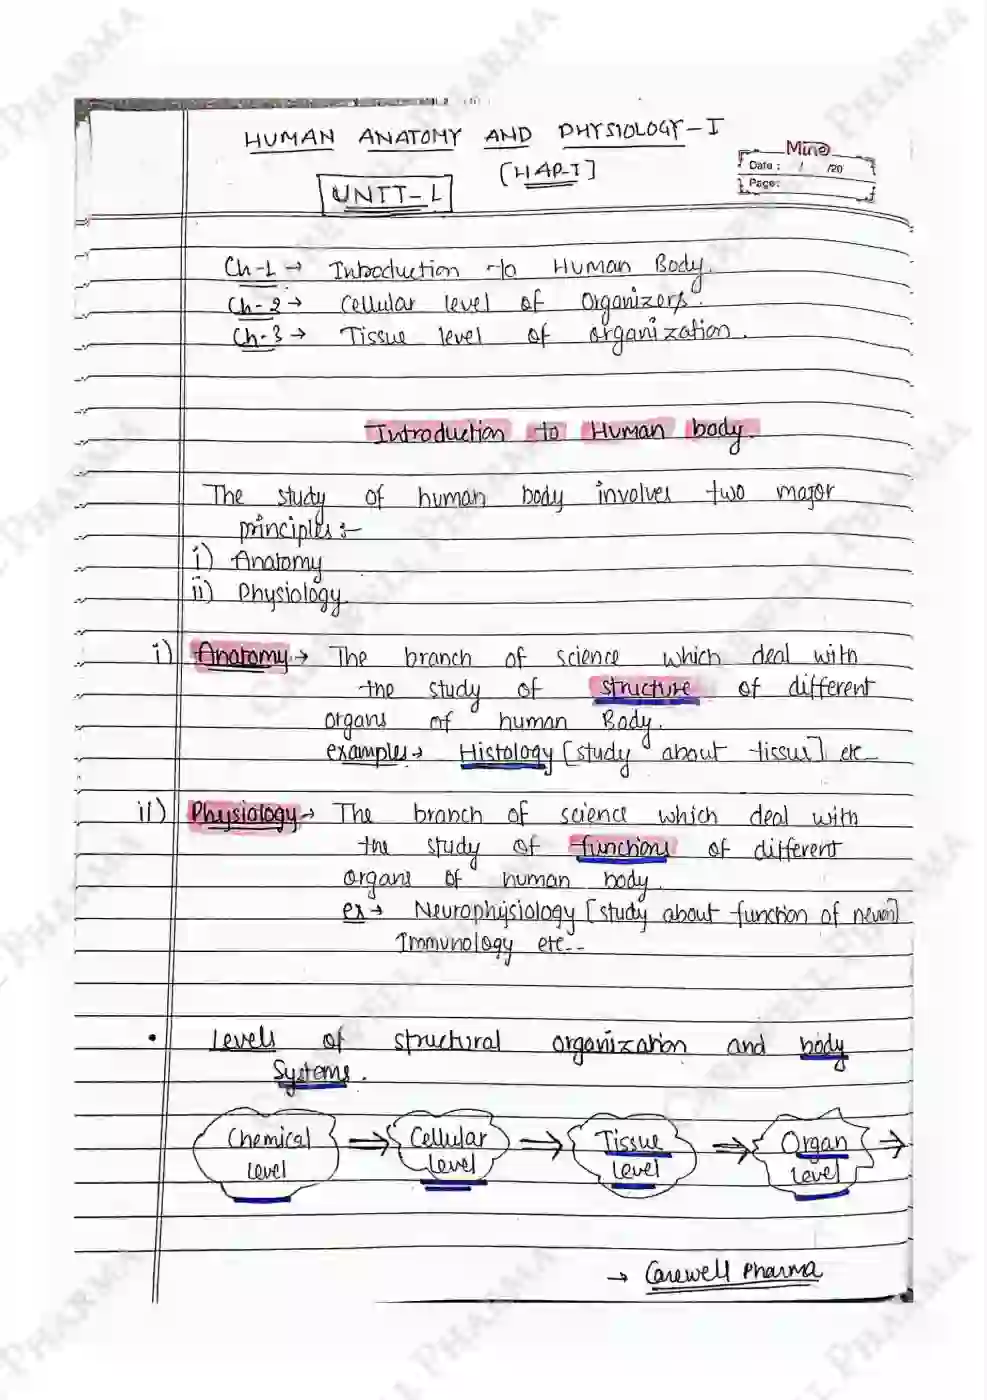 HUMAN ANATOMY AND PHYSIOLOGY-I
[HAP-I]
UNIT-1
Mine
Date : / /20
Page:
Ch-1 → Introduction to Human Body.
Ch-2 → Cellular level of Organizers.
Ch-3 → Tissue level of organization.
Introduction to Human body.
The study of human body involves two major
principles:-
i) Anatomy
ii) Physiology
i) Anatomy → The branch of science which deal with
the study of structure of different
organs of human Body.
examples → Histology [study about tissus] etc
ii) Physiology → The branch of science which deal with
the study of functions of different
organs of human body.
ex → Neurophysiology [study about function of neuron]
Immunology etc--
• Levels of structural organization and body
Systems.
Chemical level → Cellular level → Tissue level → Organ level →
→ Carewell Pharma
CAREWELL PHARMA